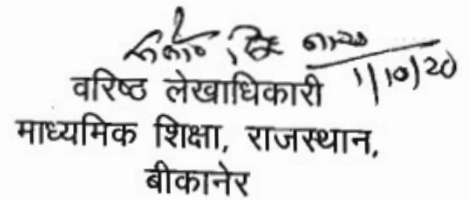 1/10/20
वरिष्ठ लेखाधिकारी
माध्यमिक शिक्षा, राजस्थान,
बीकानेर